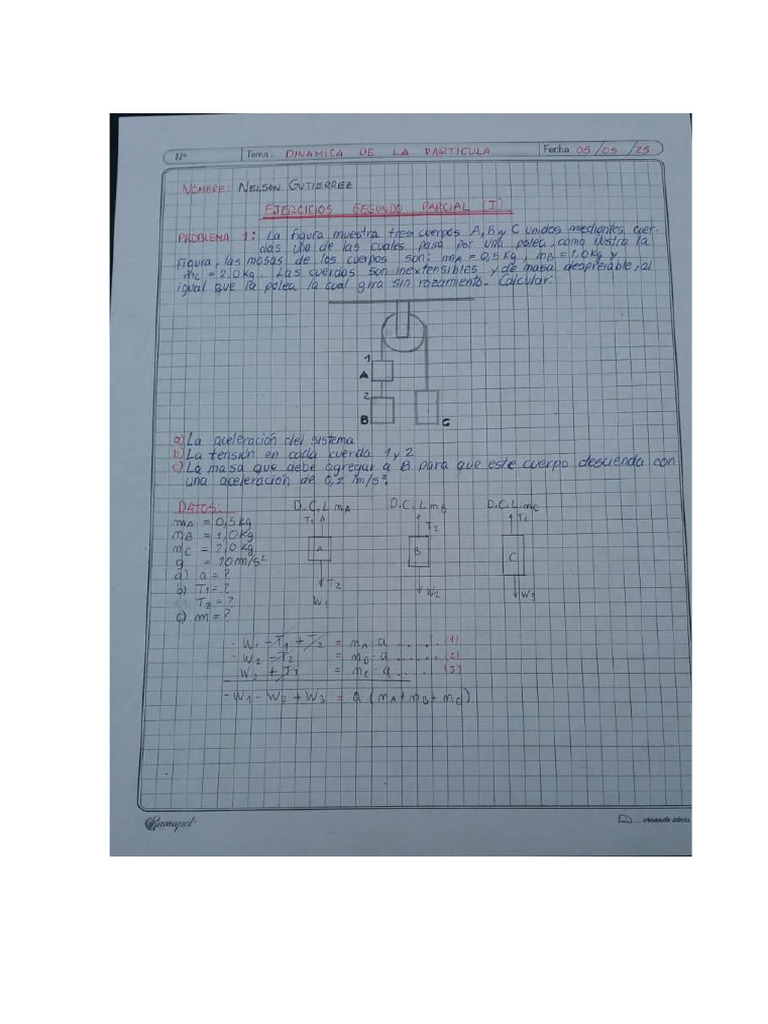 Nº Tema: DINAMICA DE LA PARTICULA Fecha 05/05/25
NOMBRE: NELSON GUTIERREZ
EJERCICIOS SEGUNDO PARCIAL (I)
PROBLEMA 1: La figura muestra tres cuerpos A, B y C unidos mediantes cuer-
das una de las cuales pasa por una polea, como ilustra la
figura, las masas de los cuerpos son: mA = 0,5 Kg, mB = 1,0 Kg y
mC = 2.0 Kg. Las cuerdas son inextensibles y de masa despreiable, al
igual que la polea la cual gira sin rozamiento. Calcular:
1
A
2
B C
a) La aceleración del sistema
b) La tensión en cada cuerda 1 y 2
c) La masa que debe agregar a B para que este cuerpo descienda con
una aceleración de 0,2 m/s².
DATOS: D.C.L mA D.C.L mB D.C.L mC
mA = 0,5 Kg T1 T2 T1
mB = 1,0 Kg A B C
mC = 2,0 Kg T2 W2 W3
g = 10 m/s² W1
a) a = ?
b) T1 = ?
T2 = ?
c) m = ?
- W1 - T1 + T2 = mA · a ...... (1)
- W2 - T2 = mB · a ...... (2)
W3 + T1 = mC · a ...... (3)
- W1 - W2 + W3 = a (mA + mB + mC)
Ramapel ... creando ideas